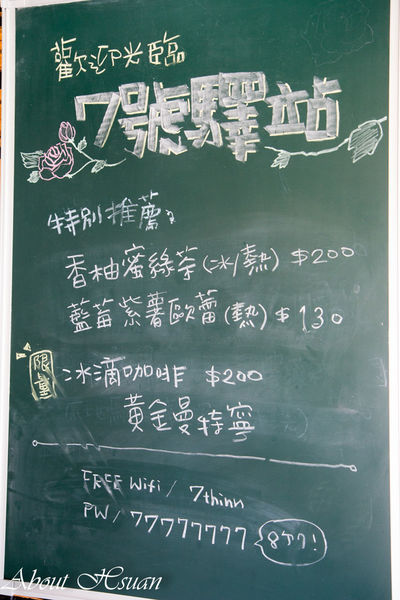 歡迎光臨
7號驛站
特別推薦:
香柚蜜綠茶(冰/熱) $200
藍莓紫薯歐蕾(熱) $130
限量 冰滴咖啡 $200
黃金曼特寧
FREE Wifi / 7thinn
PW / 77777777 8個7!
About Hsuan